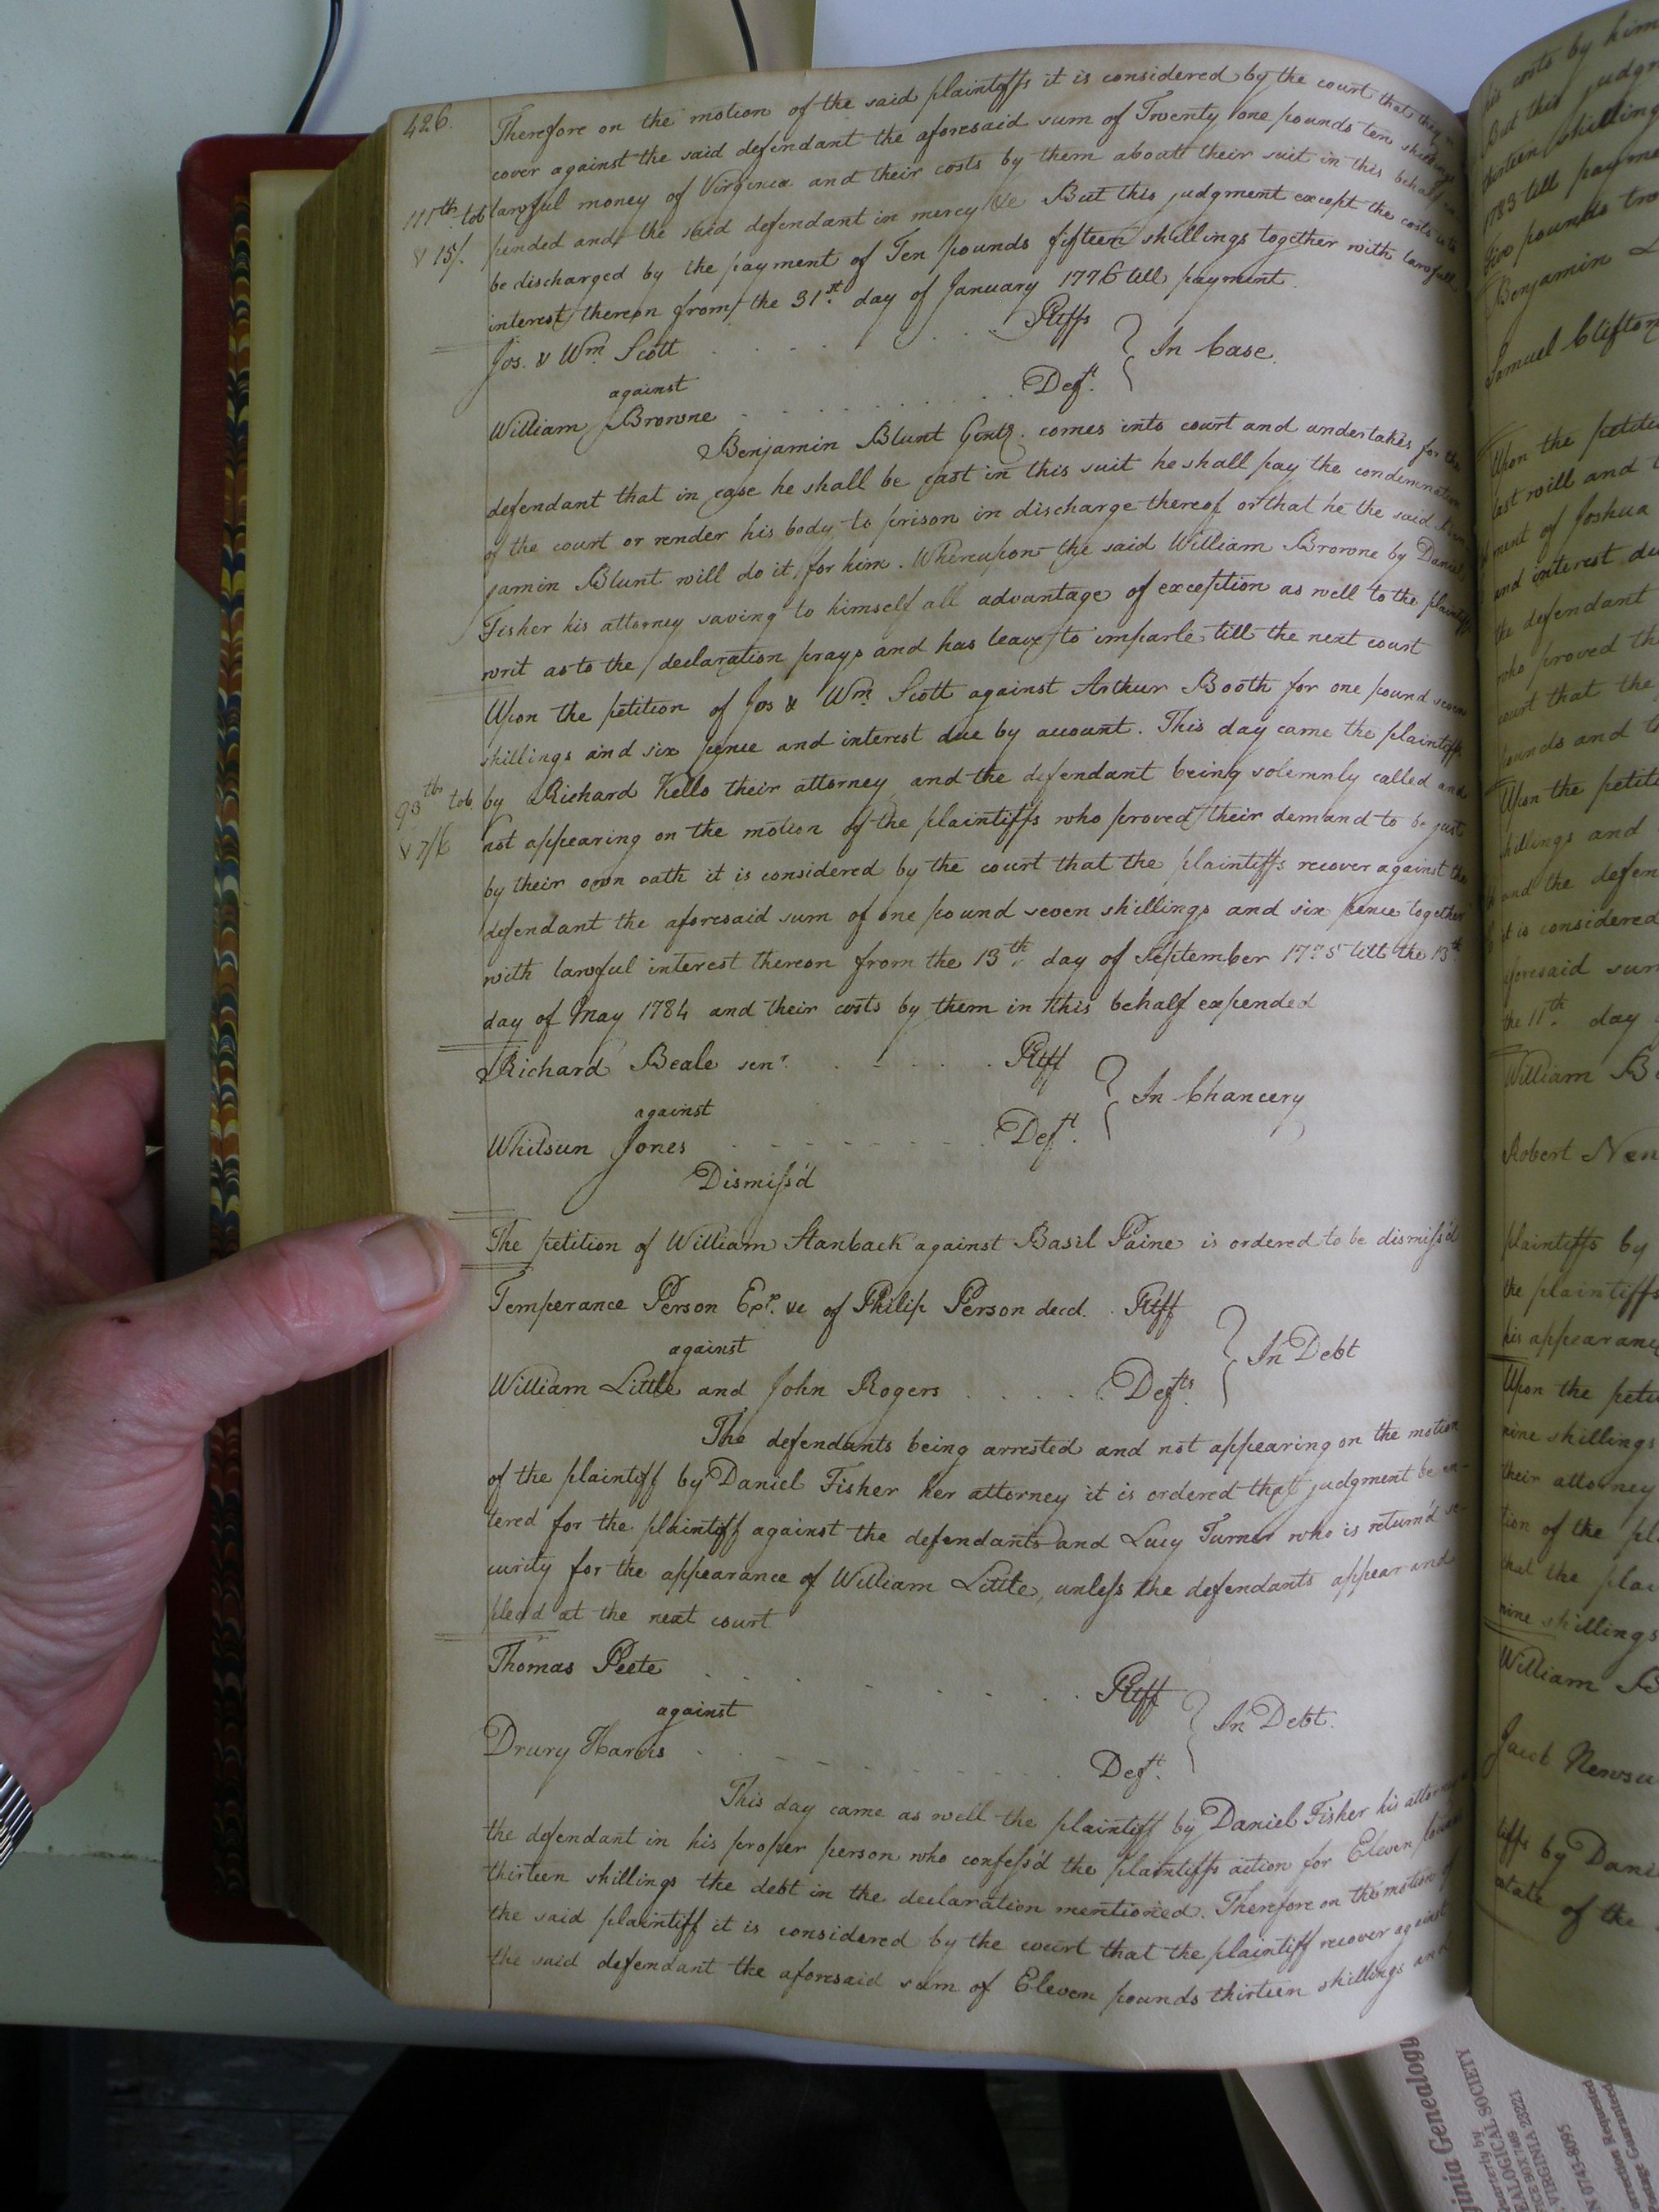 426.
Therefore on the motion of the said plaintiffs it is considered by the court that they
cover against the said defendant the aforesaid sum of Twenty one pounds ten shillings
lawful money of Virginia and their costs by them about their suit in this behalf
111 tob
& 15/.
pended and the said defendant in mercy &c But this judgment except the costs is to
be discharged by the payment of Ten pounds fifteen shillings together with lawfull
interest thereon from the 31st. day of January 1776 till payment.
Jos. & Wm. Scott . . . . . Pltffs
against
In Case.
William Browne . . . . . Deft.
Benjamin Blunt Gent. comes into court and undertakes for the
defendant that in case he shall be cast in this suit he shall pay the condemnation
of the court or render his body to prison in discharge thereof or that he the said Ben-
jamin Blunt will do it for him. Whereupon the said William Browne by Daniel
Fisher his attorney saving to himself all advantage of exception as well to the plaintiffs
writ as to the declaration prays and has leave to imparle till the next court
Upon the petition of Jos & Wm. Scott against Arthur Booth for one pound seven
shillings and six pence and interest due by account. This day came the plaintiffs
93 tob
& 7/6
by Richard Kello their attorney and the defendant being solemnly called and
not appearing on the motion of the plaintiffs who proved their demand to be just
by their own oath it is considered by the court that the plaintiffs recover against the
defendant the aforesaid sum of one pound seven shillings and six pence together
with lawful interest thereon from the 13th. day of September 1775 till the 13th
day of May 1784 and their costs by them in this behalf expended
Richard Beale senr. . . . . . Pltff
against
In Chancery
Whitsun Jones . . . . . Deft.
Dismiss'd
The petition of William Stanback against Basil Paine is ordered to be dismiss'd
Temperance Person Exr. &c of Philip Person decd. . Pltff
against
In Debt
William Little and John Rogers . . . . . Defts.
The defendants being arrested and not appearing on the motion
of the plaintiff by Daniel Fisher her attorney it is ordered that judgment be en-
tered for the plaintiff against the defendants and Lucy Turner who is return'd se-
curity for the appearance of William Little, unless the defendants appear and
plead at the next court
Thomas Peete . . . . . Pltff
against
In Debt.
Drury Harris . . . . . Deft.
This day came as well the plaintiff by Daniel Fisher his attorney
the defendant in his proper person who confess'd the plaintiffs action for Eleven pounds
thirteen shillings the debt in the declaration mentioned. Therefore on the motion of
the said plaintiff it is considered by the court that the plaintiff recover against
the said defendant the aforesaid sum of Eleven pounds thirteen shillings and
his costs by him
But this judgm
thirteen shilling
1783 till payme
five pounds
Benjamin
Samuel Clifton
Upon the petiti
last will and t
ment of Joshua
and interest du
the defendant
who proved th
court that the
pounds and t
Upon the petiti
shillings and
and the defen
it is considered
aforesaid sum
the 11th. day
William B
Robert New
plaintiffs by
the plaintiffs
his appearanc
Upon the peti
nine shillings
their attorney
tion of the pl
that the plai
nine shillings
William B
Jacob Newsu
tiffs by Dani
estate of the
ginia Genealogy
uarterly by
EALOGICAL SOCIETY
VIRGINIA 23221
N 0743-8095
rrection Requested
ostage Guaranteed